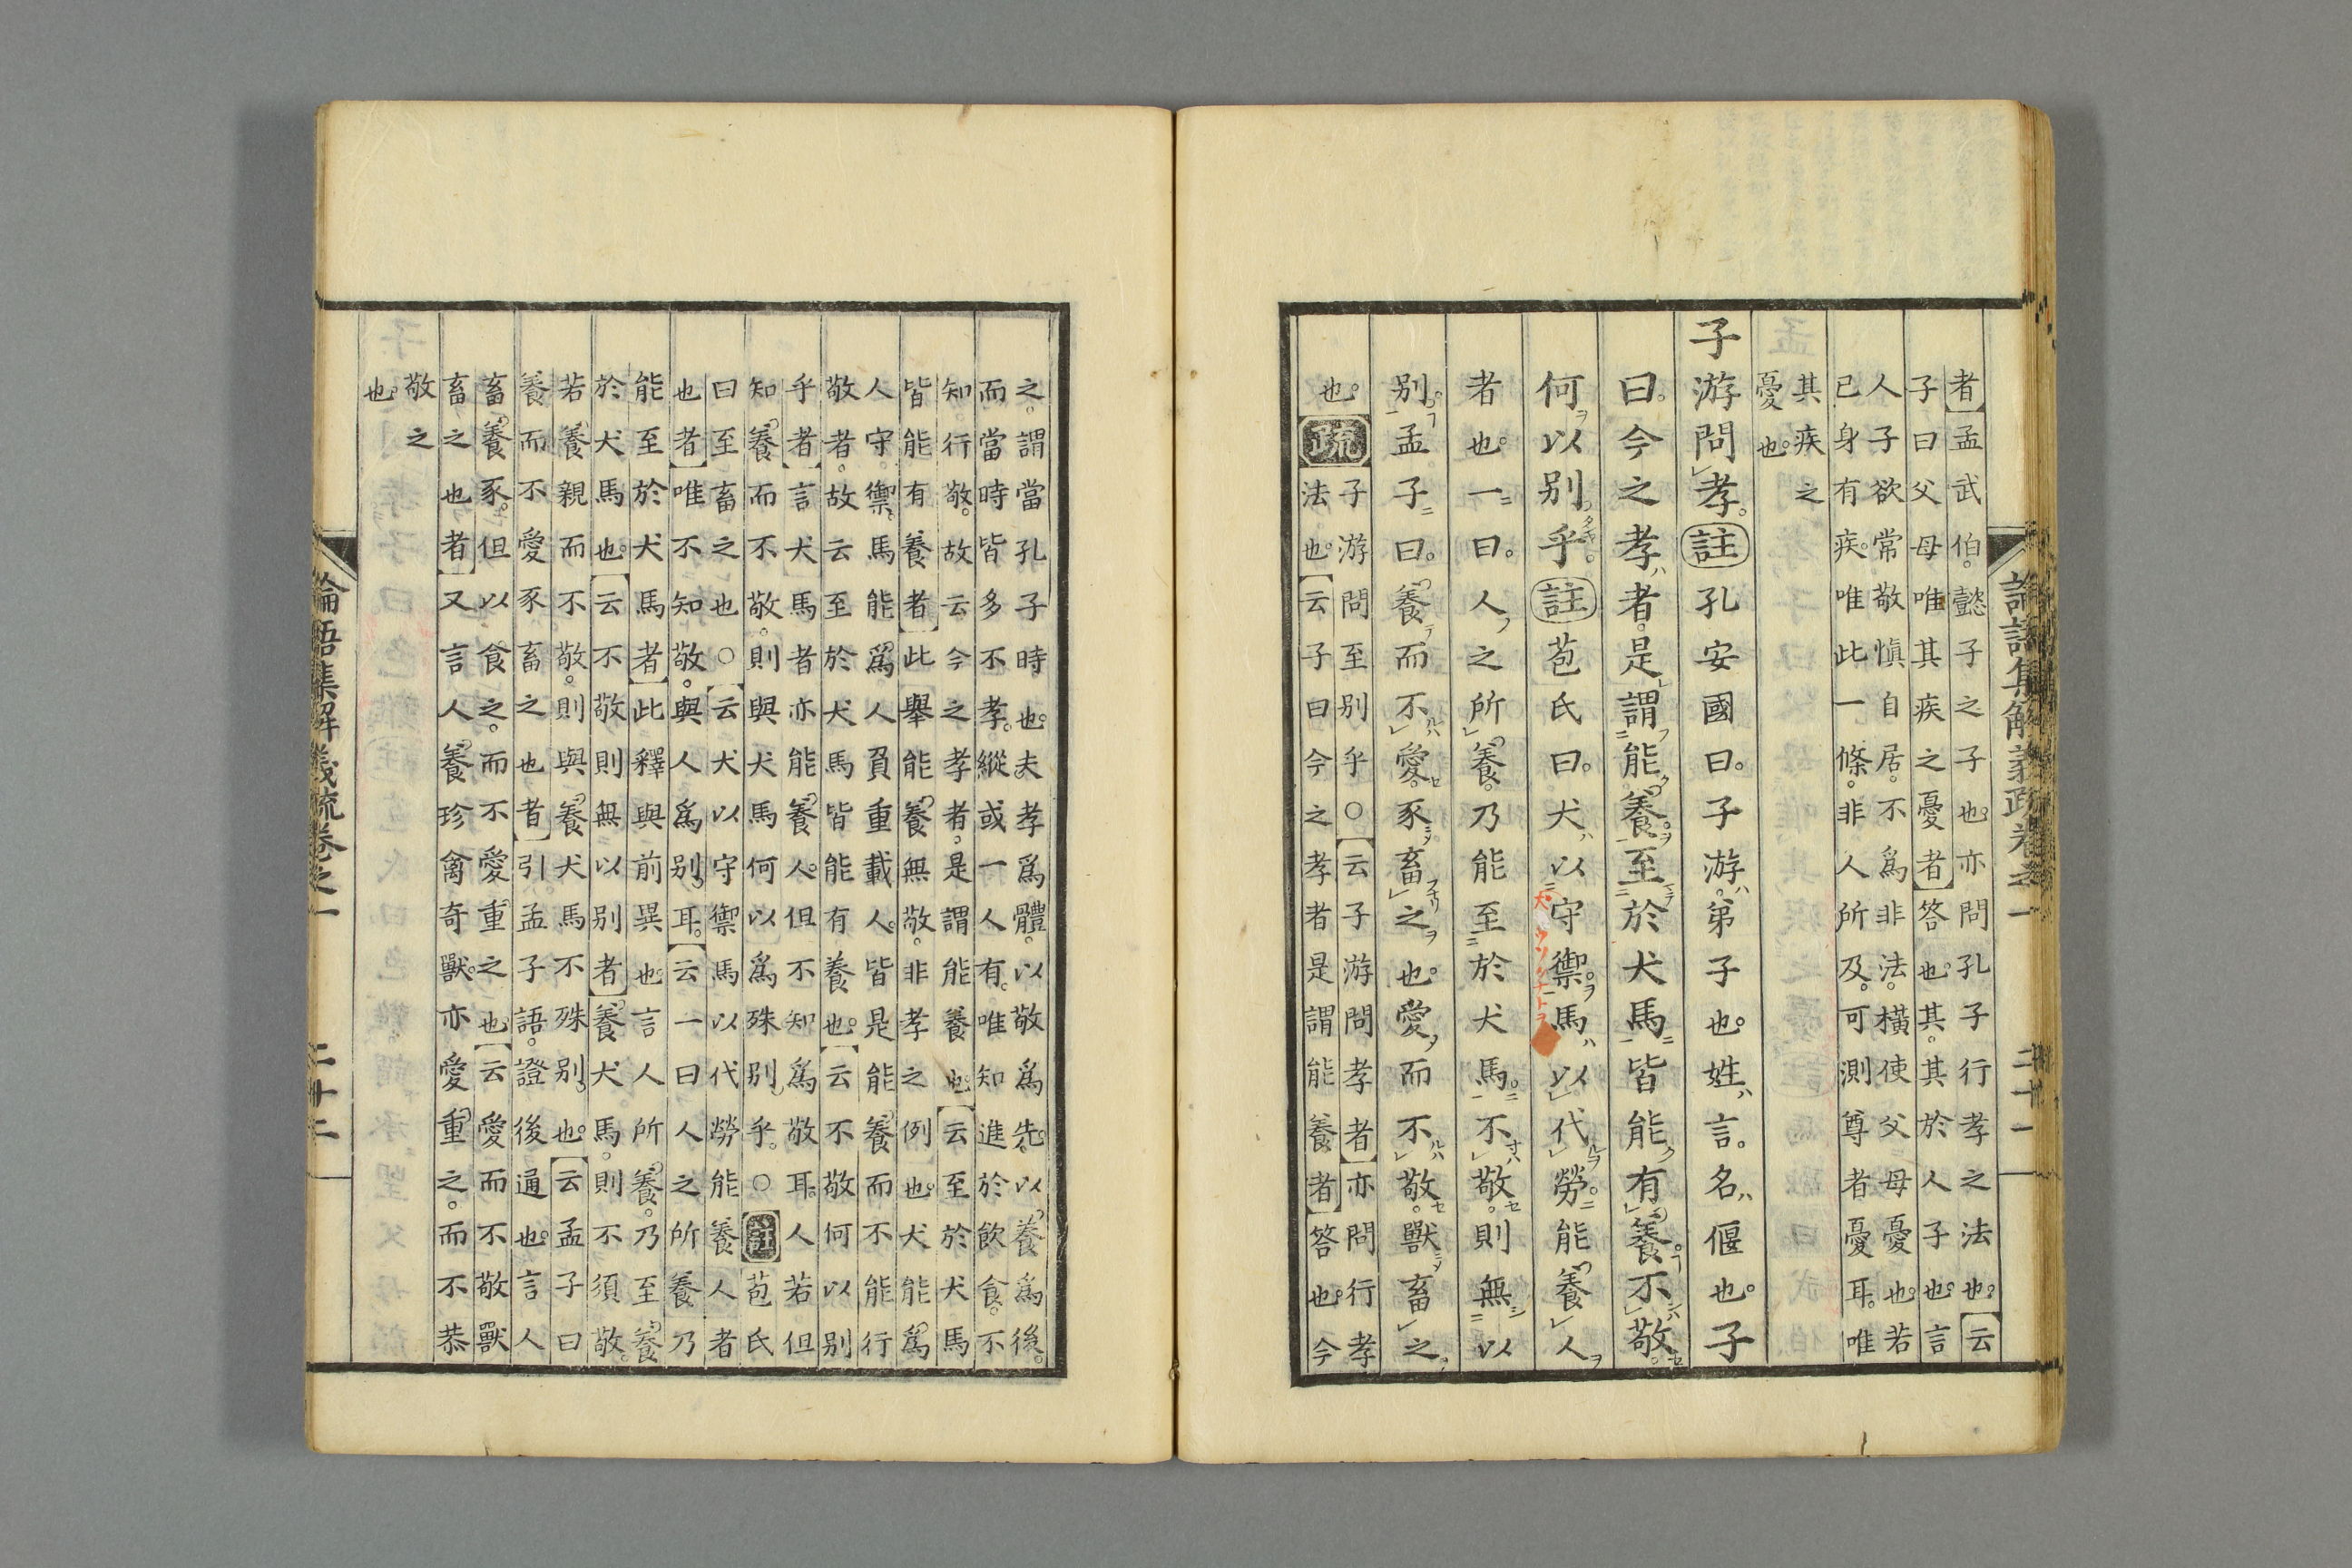 者孟武伯。懿子之子也。亦問孔子行孝之法也。云
子曰父母唯其疾之憂者答也。其。其於人子也。言
人子欲常敬慎自居。不爲非法。橫使父母憂也。若
已身有疾。唯此一條。非人所及。可測尊者憂耳。唯
其疾之
憂也。
子游問孝。註孔安國曰。子游。弟子也。姓言。名偃也。子
曰。今之孝者。是謂能養。至於犬馬皆能有養。不敬。
何以別乎。註苞氏曰。犬以守禦。馬以代勞。能養人
者也。一曰。人之所養。乃能至於犬馬。不敬。則無以
別。孟子曰。養而不愛。豕畜之也。愛而不敬。獸畜之
也。
疏
子游問至別乎○云子游問孝者亦問行孝
法也。云子曰今之孝者是謂能養者答也。今
論語集解義疏卷之一
二十一
之。謂當孔子時也。夫孝爲體。以敬爲先。以養爲後。
而當時皆多不孝。縱或一人有。唯知進於飲食。不
知行敬。故云今之孝者。是謂能養也。云至於犬馬
皆能有養者此舉能養無敬。非孝之例也。犬能爲
人守禦。馬能爲人負重載人。皆是能養而不能行
敬者。故云至於犬馬皆能有養也。云不敬何以別
乎者言犬馬者亦能養人。但不知爲敬耳。人若但
知養而不敬。則與犬馬何以爲殊別乎。○註苞氏
曰至畜之也○云犬以守禦馬以代勞能養人者
也者唯不知敬。與人爲別耳。云一曰人之所養乃
能至於犬馬者此釋與前異也。言人所養。乃至養
於犬馬也。云不敬則無以別者養犬馬。則不須敬。
若養親而不敬。則與養犬馬不殊別也。云孟子曰
養而不愛豕畜之也者引孟子語。證後通也。言人
畜養豕。但以食之。而不愛重之也。云愛而不敬獸
畜之也者又言人養珍禽奇獸。亦愛重之。而不恭
敬之
也。
論語集解義疏卷之一
二十二